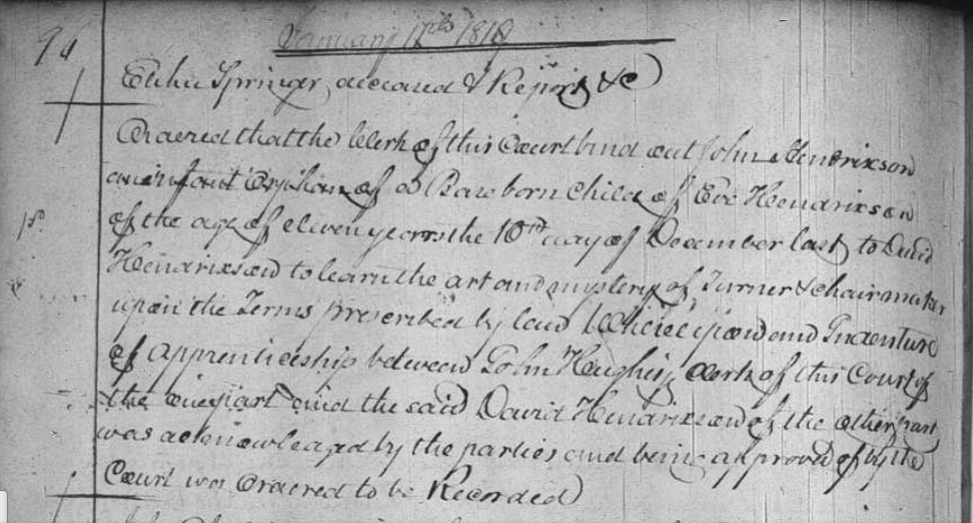 96
January 12th 1818
Elihu Springer, deceased & Report &c
Ordered that the Clerk of this Court bind out John Hendrixson
an infant Orphan of a Base born Child of Eve Hendrixson
of the age of eleven years the 10th day of December last to David
Hendrixson to learn the art and mystery of Turner & chairmaker
upon the Terms prescribed by law Whereupon and Indenture
of apprenticeship between John Hughes, clerk of this Court of
the one part and the said David Hendrixson of the other part,
was acknowledged by the parties and being approved of by the
Court was ordered to be Recorded